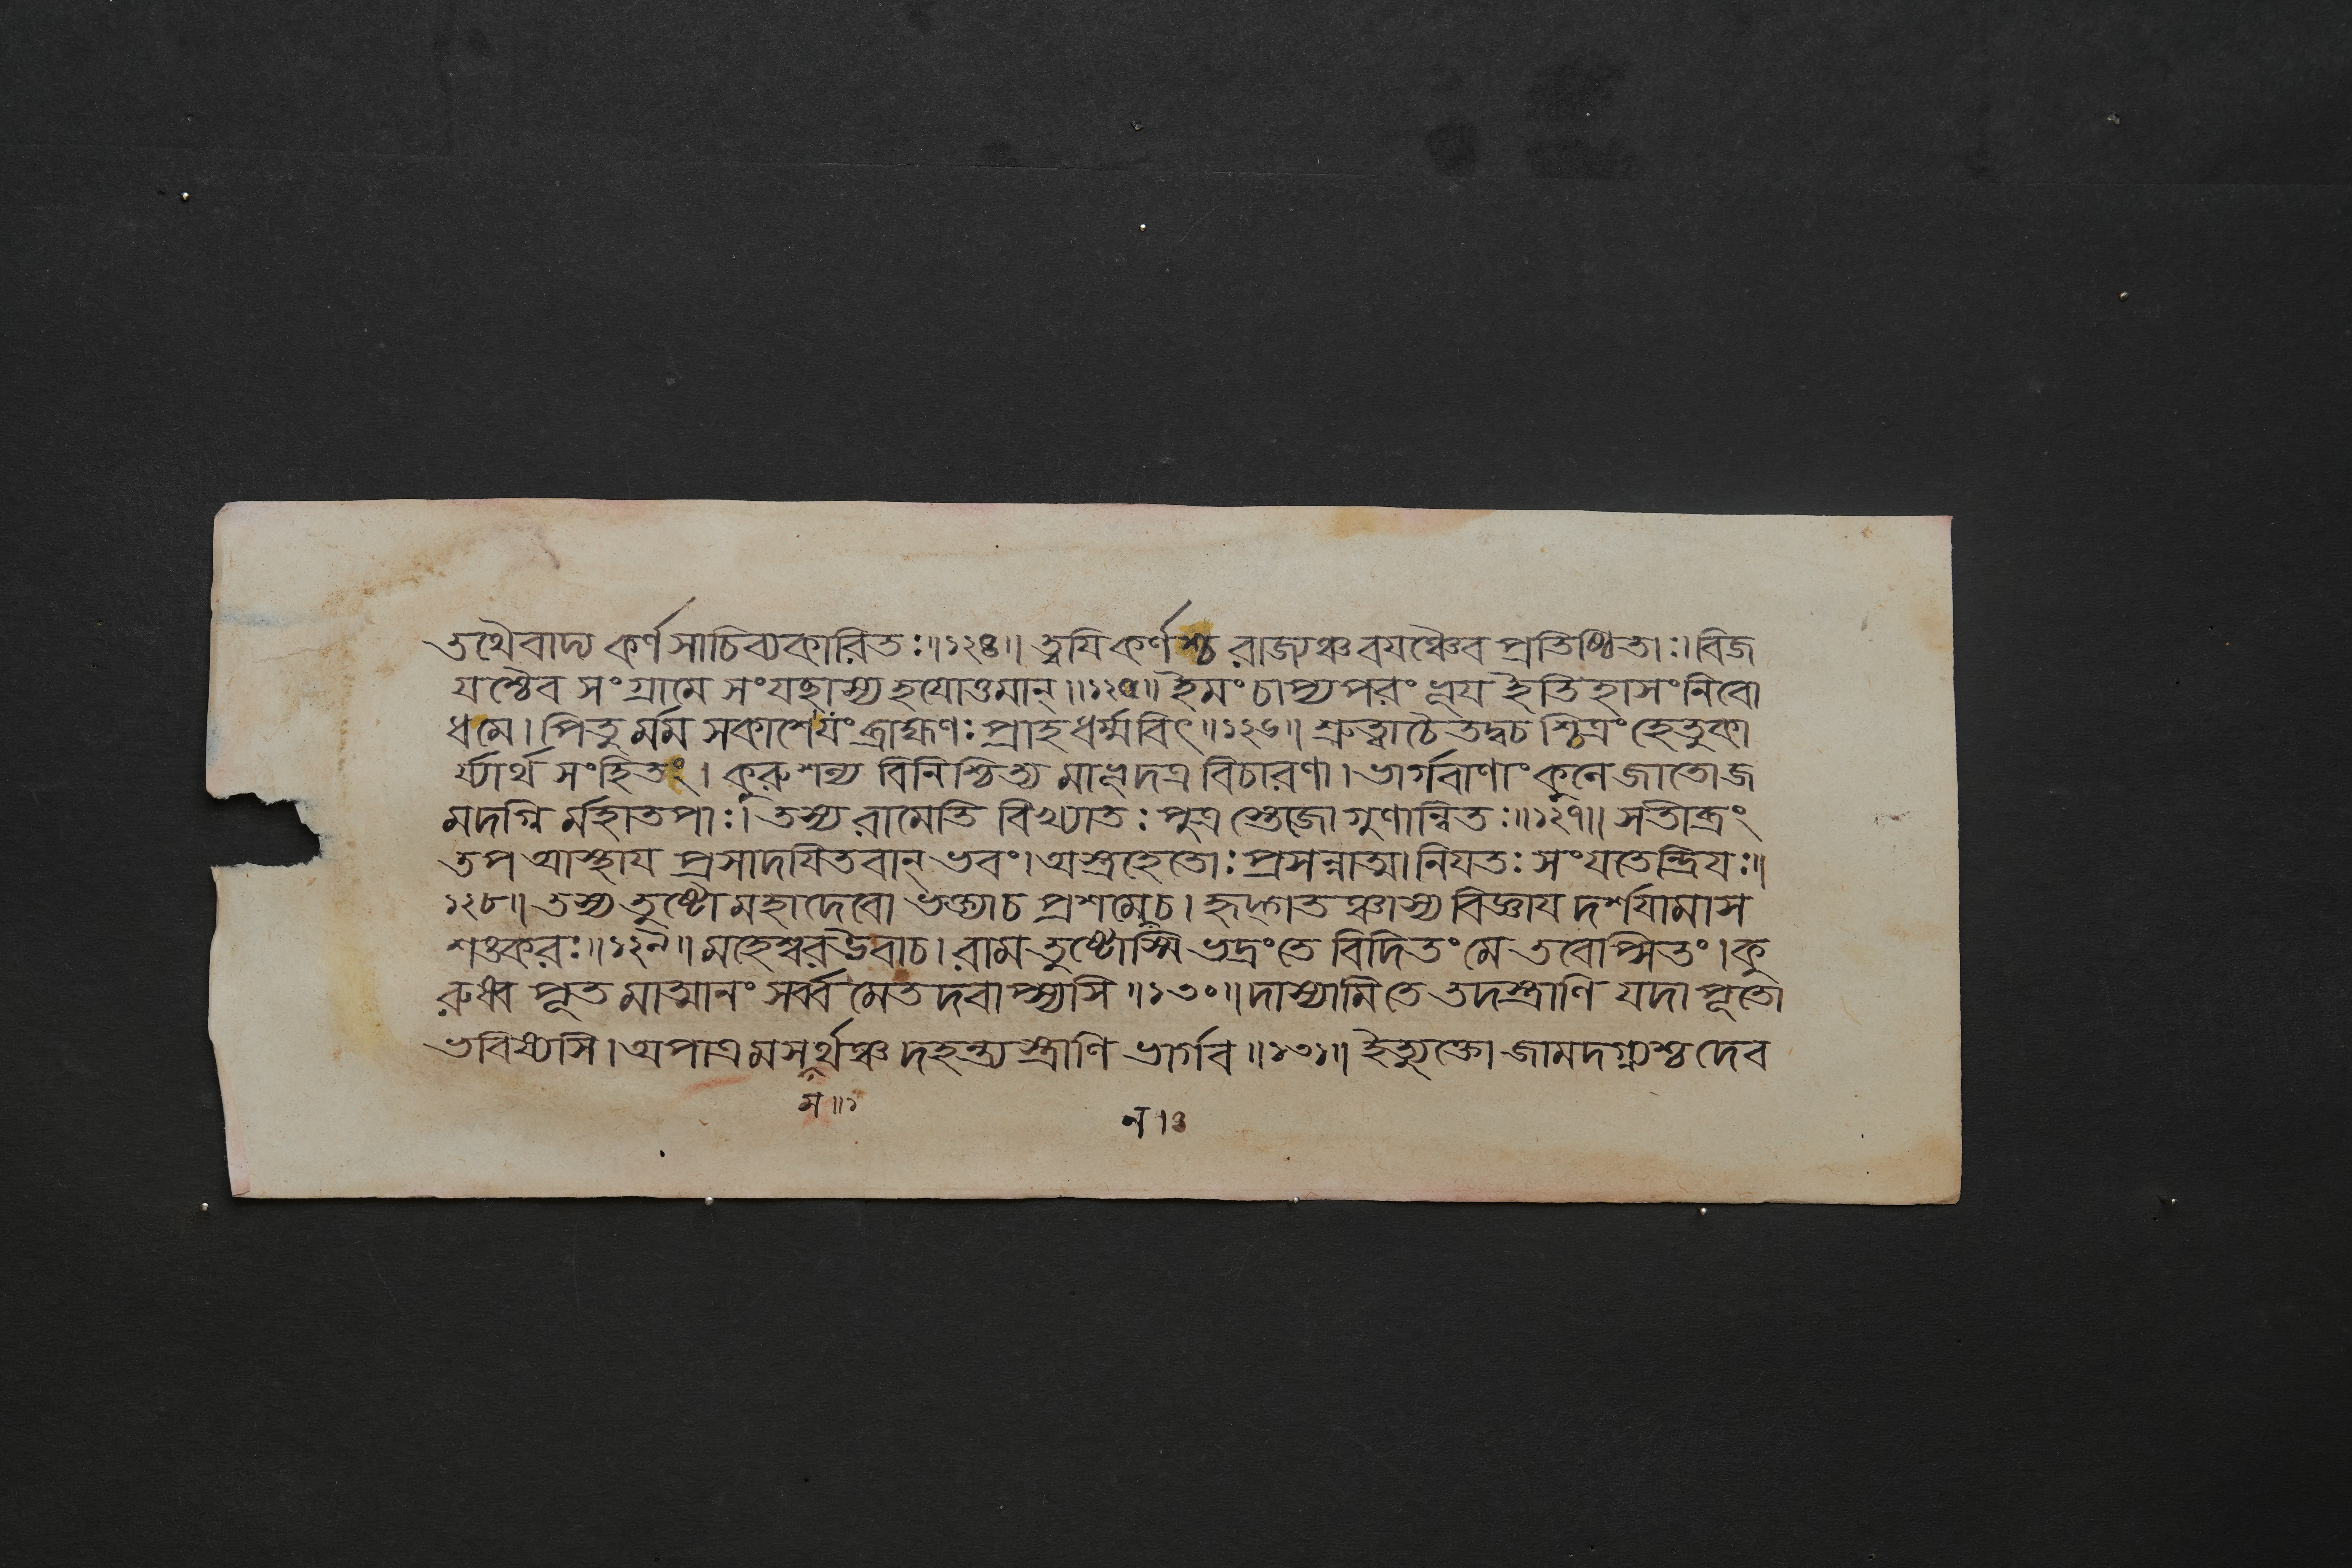 তথৈবাদ্য কর্ণসাচিব্যকারিতঃ॥১২৪॥ ত্বযি কর্ণশ্চ রাজ্যঞ্চ বযঞ্চৈব প্রতিষ্ঠিতাঃ। বিজ
যশ্চৈব সংগ্রামে সংযচ্ছাস্য হযোত্তমান্॥১২৫॥ ইমং চাপ্যপরং ভূয ইতিহাসং নিবো
ধমে। পিতুর্মম সকাশেযং ব্রাহ্মণঃ প্রাহ ধর্ম্মবিৎ॥১২৬॥ শ্রুত্বাচৈতদ্বচশ্চিত্রং হেতুকা
র্য্যার্থ সংহিতং। কুরুশল্য বিনিশ্চিত্য মাভূদত্র বিচারণা। ভার্গবাণাং কুলে জাতো জ
মদগ্নির্মহাতপাঃ। তস্য রামেতি বিখ্যাতঃ পুত্রস্তেজোগুণান্বিতঃ॥১২৭॥ সতীব্রং
তপ আস্থায প্রসাদযিতবান্ ভবং। অস্ত্রহেতোঃ প্রসন্নাত্মা নিযতঃ সংযতেন্দ্রিযঃ॥
১২৮॥ তস্য তুষ্টো মহাদেবো ভক্ত্যাচ প্রশমেচ। হৃদ্গতঞ্চাস্য বিজ্ঞায দর্শযামাস
শঙ্করঃ॥১২৯॥ মহেশ্বরউবাচ। রাম তুষ্টোস্মি ভদ্রংতে বিদিতং মে তবেপ্সিতং। কু
রুষ্ব পূতমাত্মানং সর্ব্বমেতদবাপ্স্যসি॥১৩০॥ দাস্যামি তে তদস্ত্রাণি যদা পূতো
ভবিষ্যসি। অপাত্রমসর্থঞ্চ দহন্ত্যস্ত্রাণি ভার্গব॥১৩১॥ ইত্যুক্তো জামদগ্ন্যশ্চ দেব
ম॥১
ন 13